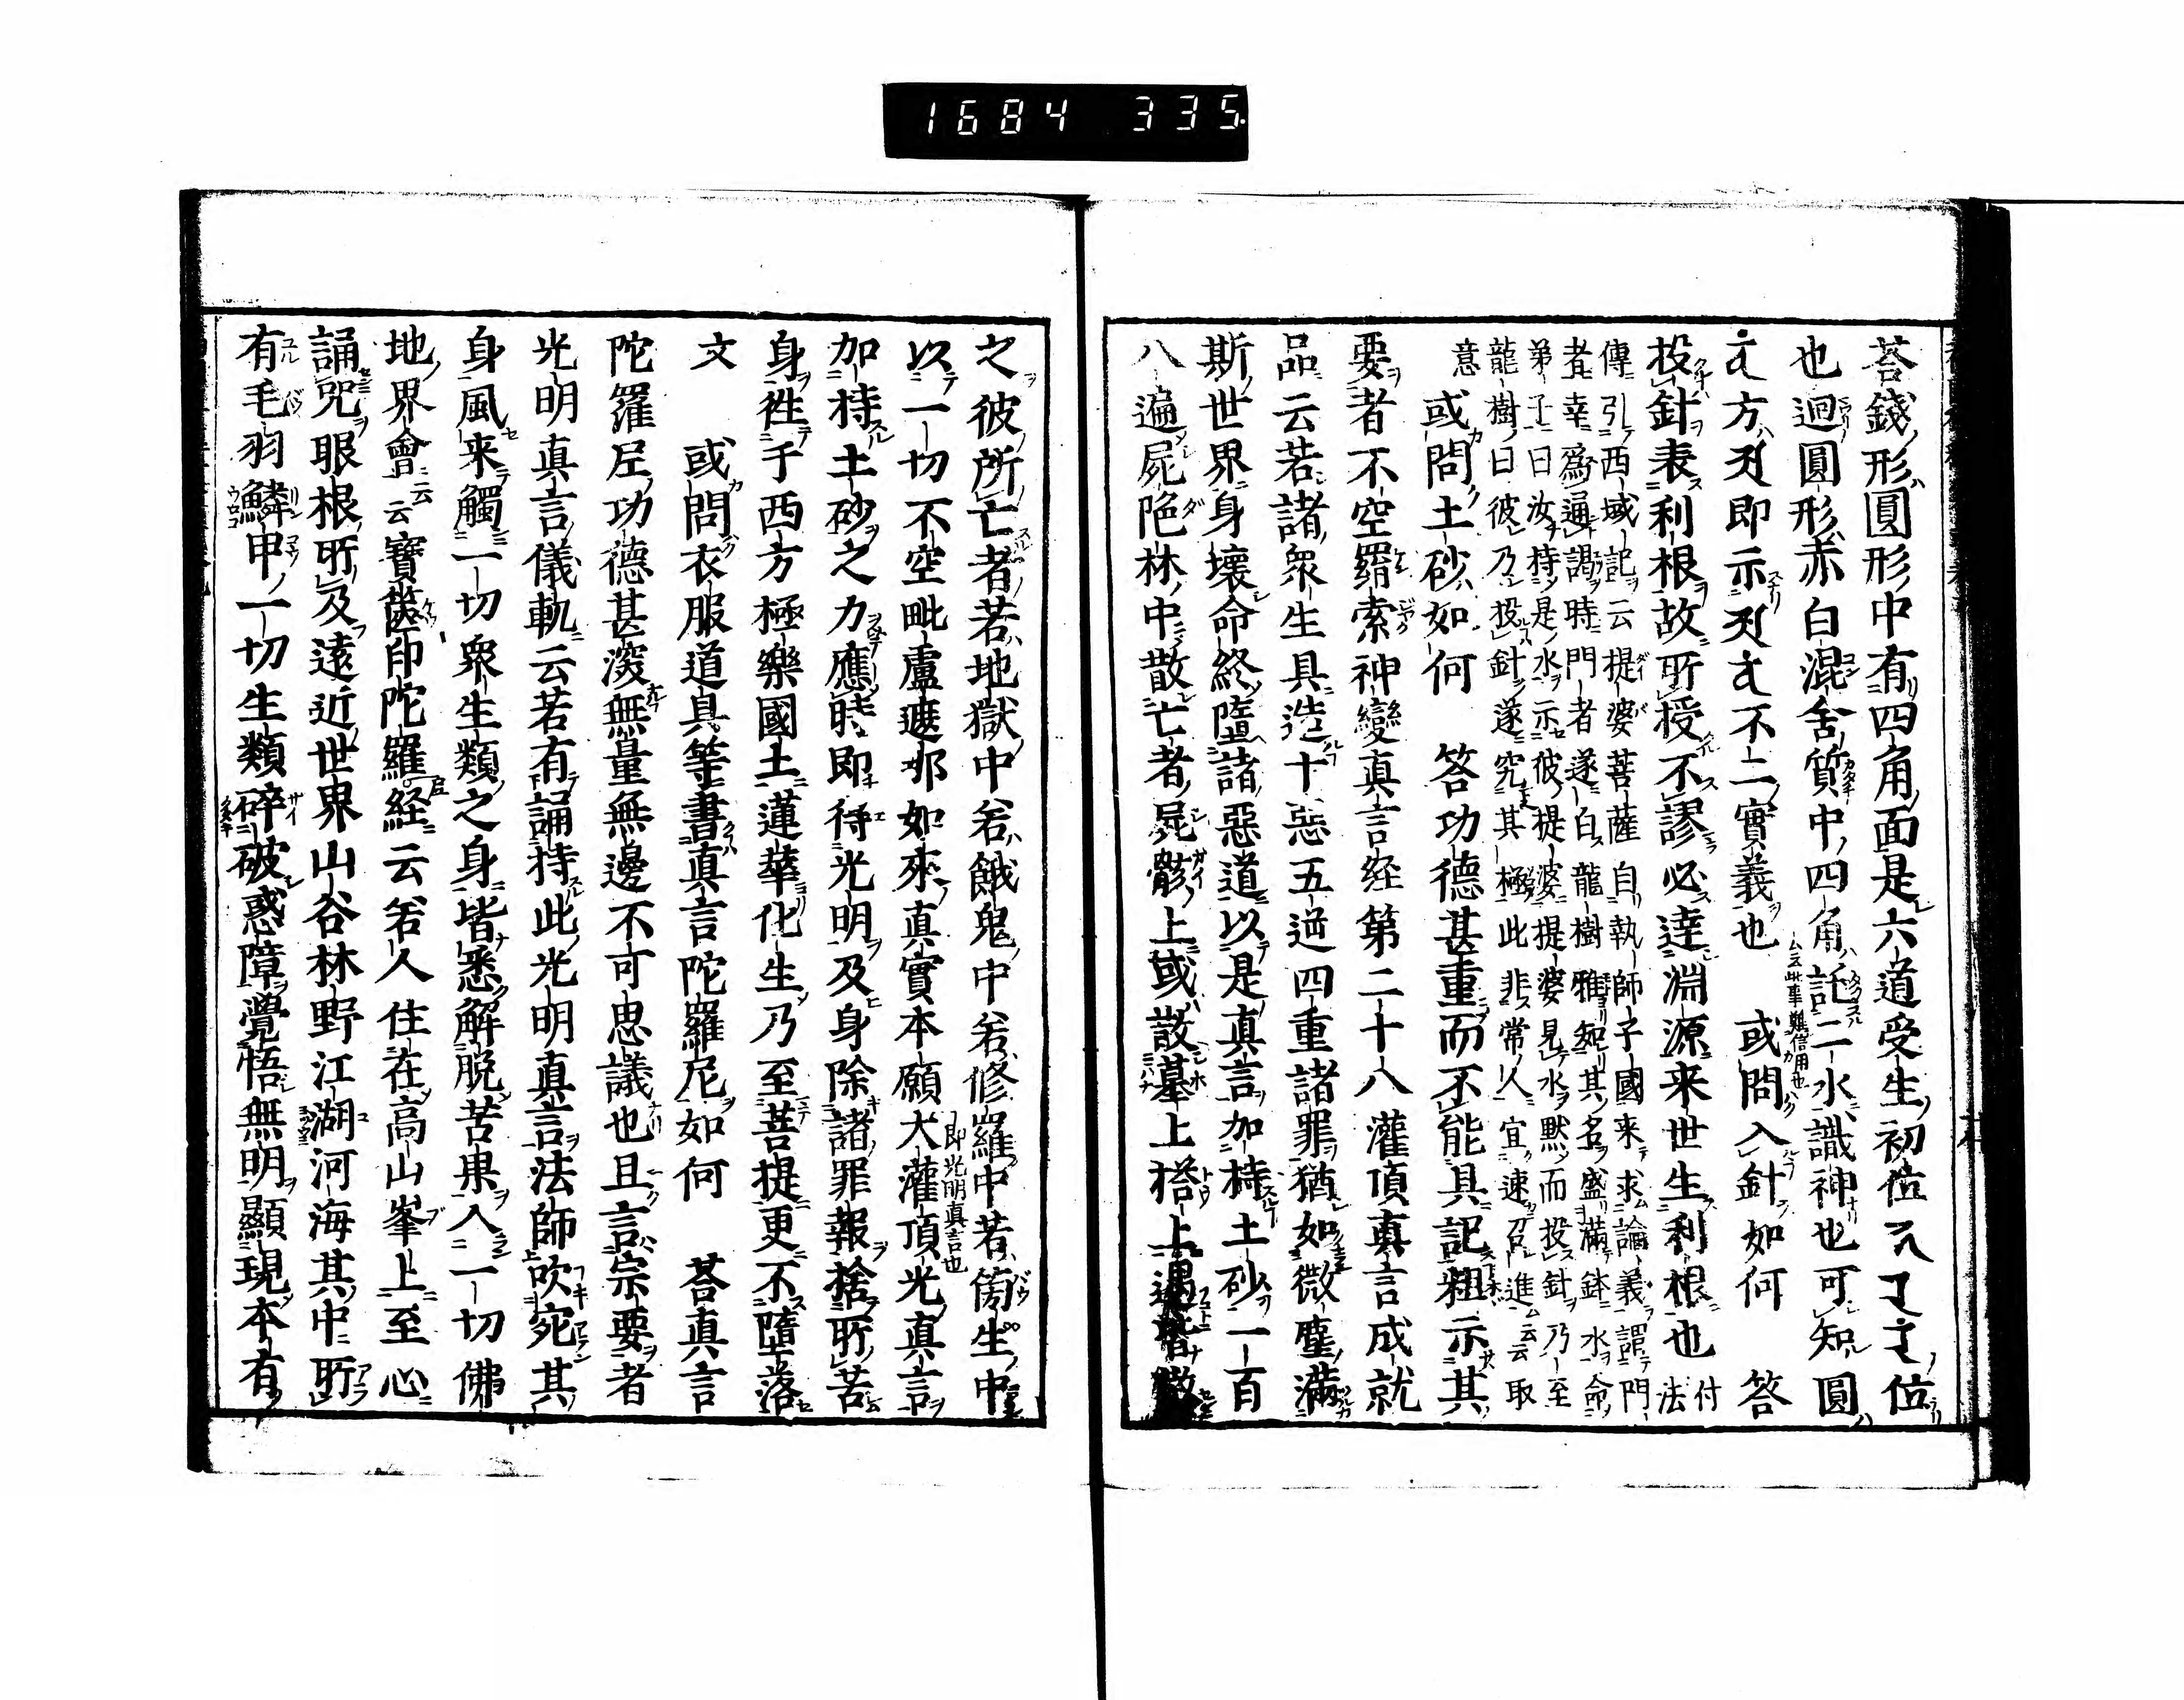 1684 335.
荅錢形圓形中有四角面是六道受生初位
位
也迴圓形赤白混舍質中四角託二水識神也可知圓
云云此事難信用也
方即示不二實義也 或問入針如何 答
投針表利根故所授不謬必達淵源来世生利根也付法
傳引西域記云提婆菩薩自執師子國来求論義謂門
者幸為通謁時門者遂白龍樹雅知其名盛滿鉢水命
弟子曰汝持是水示彼提婆提婆見水默而投針乃至
龍樹曰彼乃投針遂究其極此非常人宜速召進云云取
意 或問土砂如何 答功德甚重而不能具記粗示其
要者不空羂索神變真言経第二十八灌頂真言成就
品云若諸衆生具造十惡五逆四重諸罪猶如微塵滿
斯世界身壊命終墮諸惡道以是真言加持土砂一百
八遍屍陁林中散亡者屍骸上或散墓上塔上遇皆散
之彼所亡者若地獄中若餓鬼中若修羅中若傍生中
以一切不空毗盧遮那如來真實本願大灌頂光真言
即光明真言也
加持土砂之力應時即得光明及身除諸罪報捨所苦
身徃于西方極樂國土蓮華化生乃至菩提更不墮落
文 或問衣服道具等書真言陀羅尼如何 荅真言
陀羅尼功德甚深無量無邊不可思議也且言宗要者
光明真言儀軌云若有誦持此光明真言法師吹宛其
身風来觸一切衆生類之身皆悉解脱苦果入一切佛
地界會云云寶篋印陀羅経云若人住在高山峯上至心
誦咒眼根所及遠近世界山谷林野江湖河海其中所
有毛羽鱗甲一切生類碎破惑障覺悟無明顯現本有